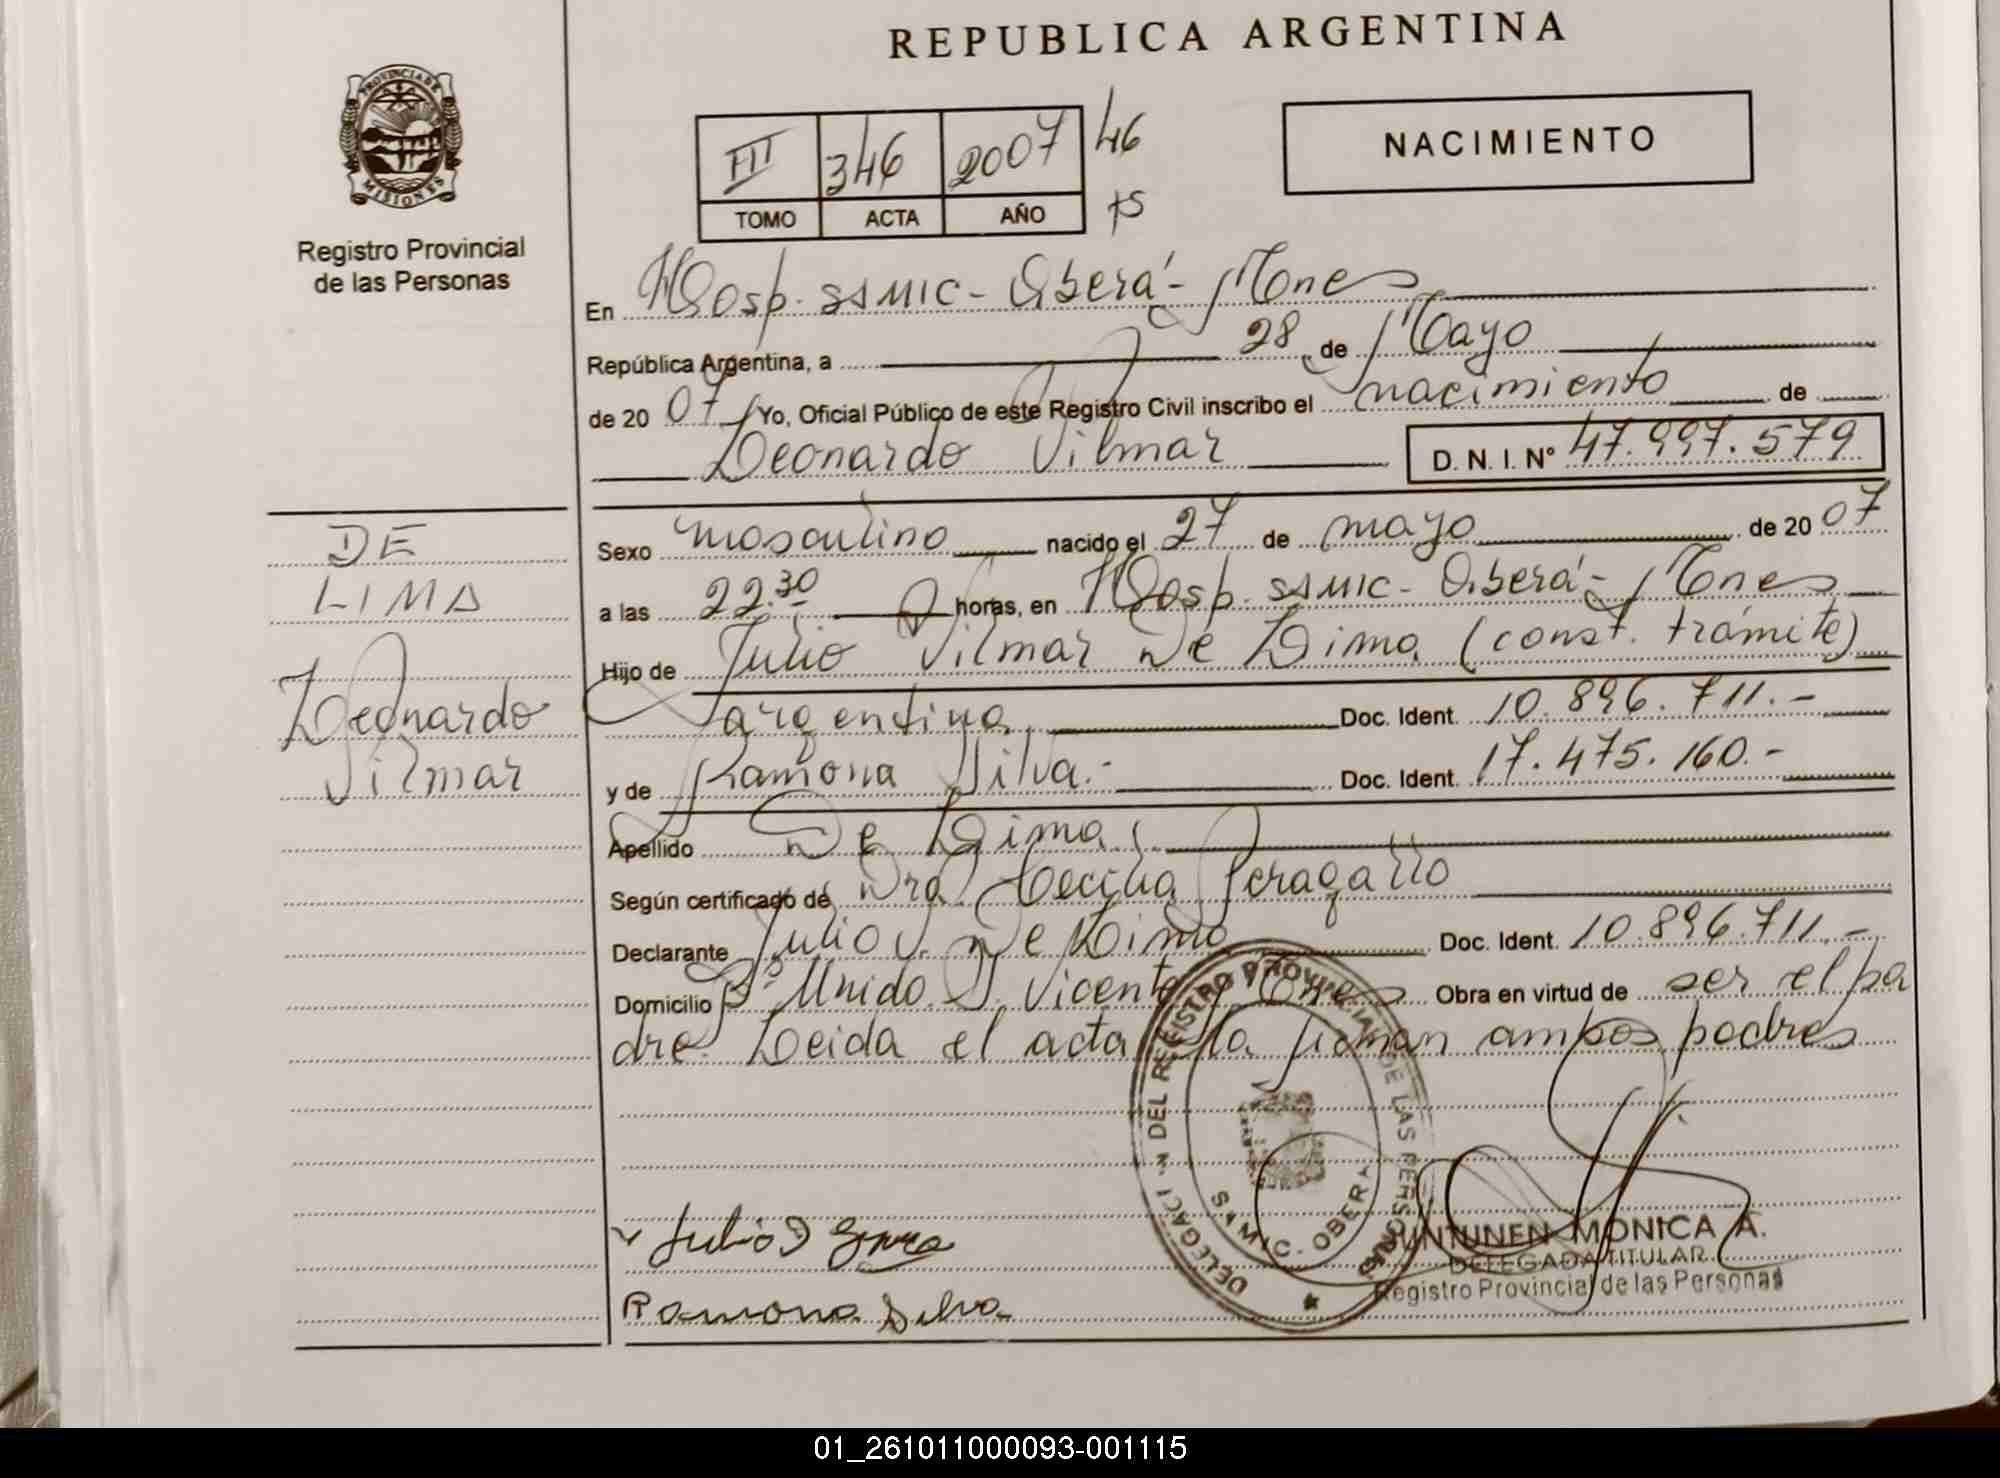 REPUBLICA ARGENTINA
PROVINCIA DE
MISIONES
Registro Provincial
de las Personas
III 346 2007 46
TOMO ACTA AÑO
NACIMIENTO
En Hosp. SAMIC - Oberá - Mnes
República Argentina, a 28 de Mayo
de 20 07 Yo, Oficial Público de este Registro Civil inscribo el nacimiento de
Leonardo Vilmar D. N. I. N° 47.997.579
DE
LIMA
Leonardo
Vilmar
Sexo masculino nacido el 27 de mayo de 20 07
a las 22.30 horas, en Hosp. SAMIC - Oberá - Mnes
Hijo de Julio Vilmar De Lima (const. trámite)
argentina Doc. Ident. 10.896.711.-
y de Ramona Silva.- Doc. Ident. 17.475.160.-
Apellido De Lima
Según certificado de Dra Cecilia Peragallo
Declarante Julio V. De Lima Doc. Ident. 10.896.711.-
Domicilio B° Unido S. Vicente Mnes Obra en virtud de ser el pa
dre. Leida el acta la firman ambos padres
DELEGACI N DEL REGISTRO PROVINCIAL DE LAS PERSONAS
SAMIC. OBERA
Julio
Ramona Silva
UNTUNEN MONICA A.
DELEGADA TITULAR
Registro Provincial de las Personas
01_261011000093-001115